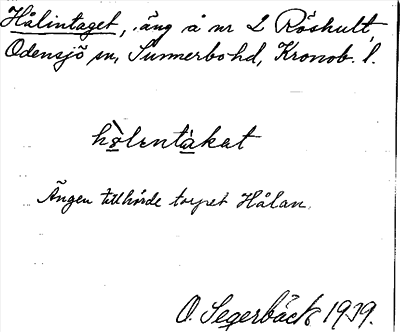 Hålintaget, äng å nr 2 Röshult,
Odensjö sn, Sunnerbo hd, Kronob. l.
hò̤lɛntà̤kat
Ängen tillhörde torpet Hålan.
O. Segerbäck 1939.